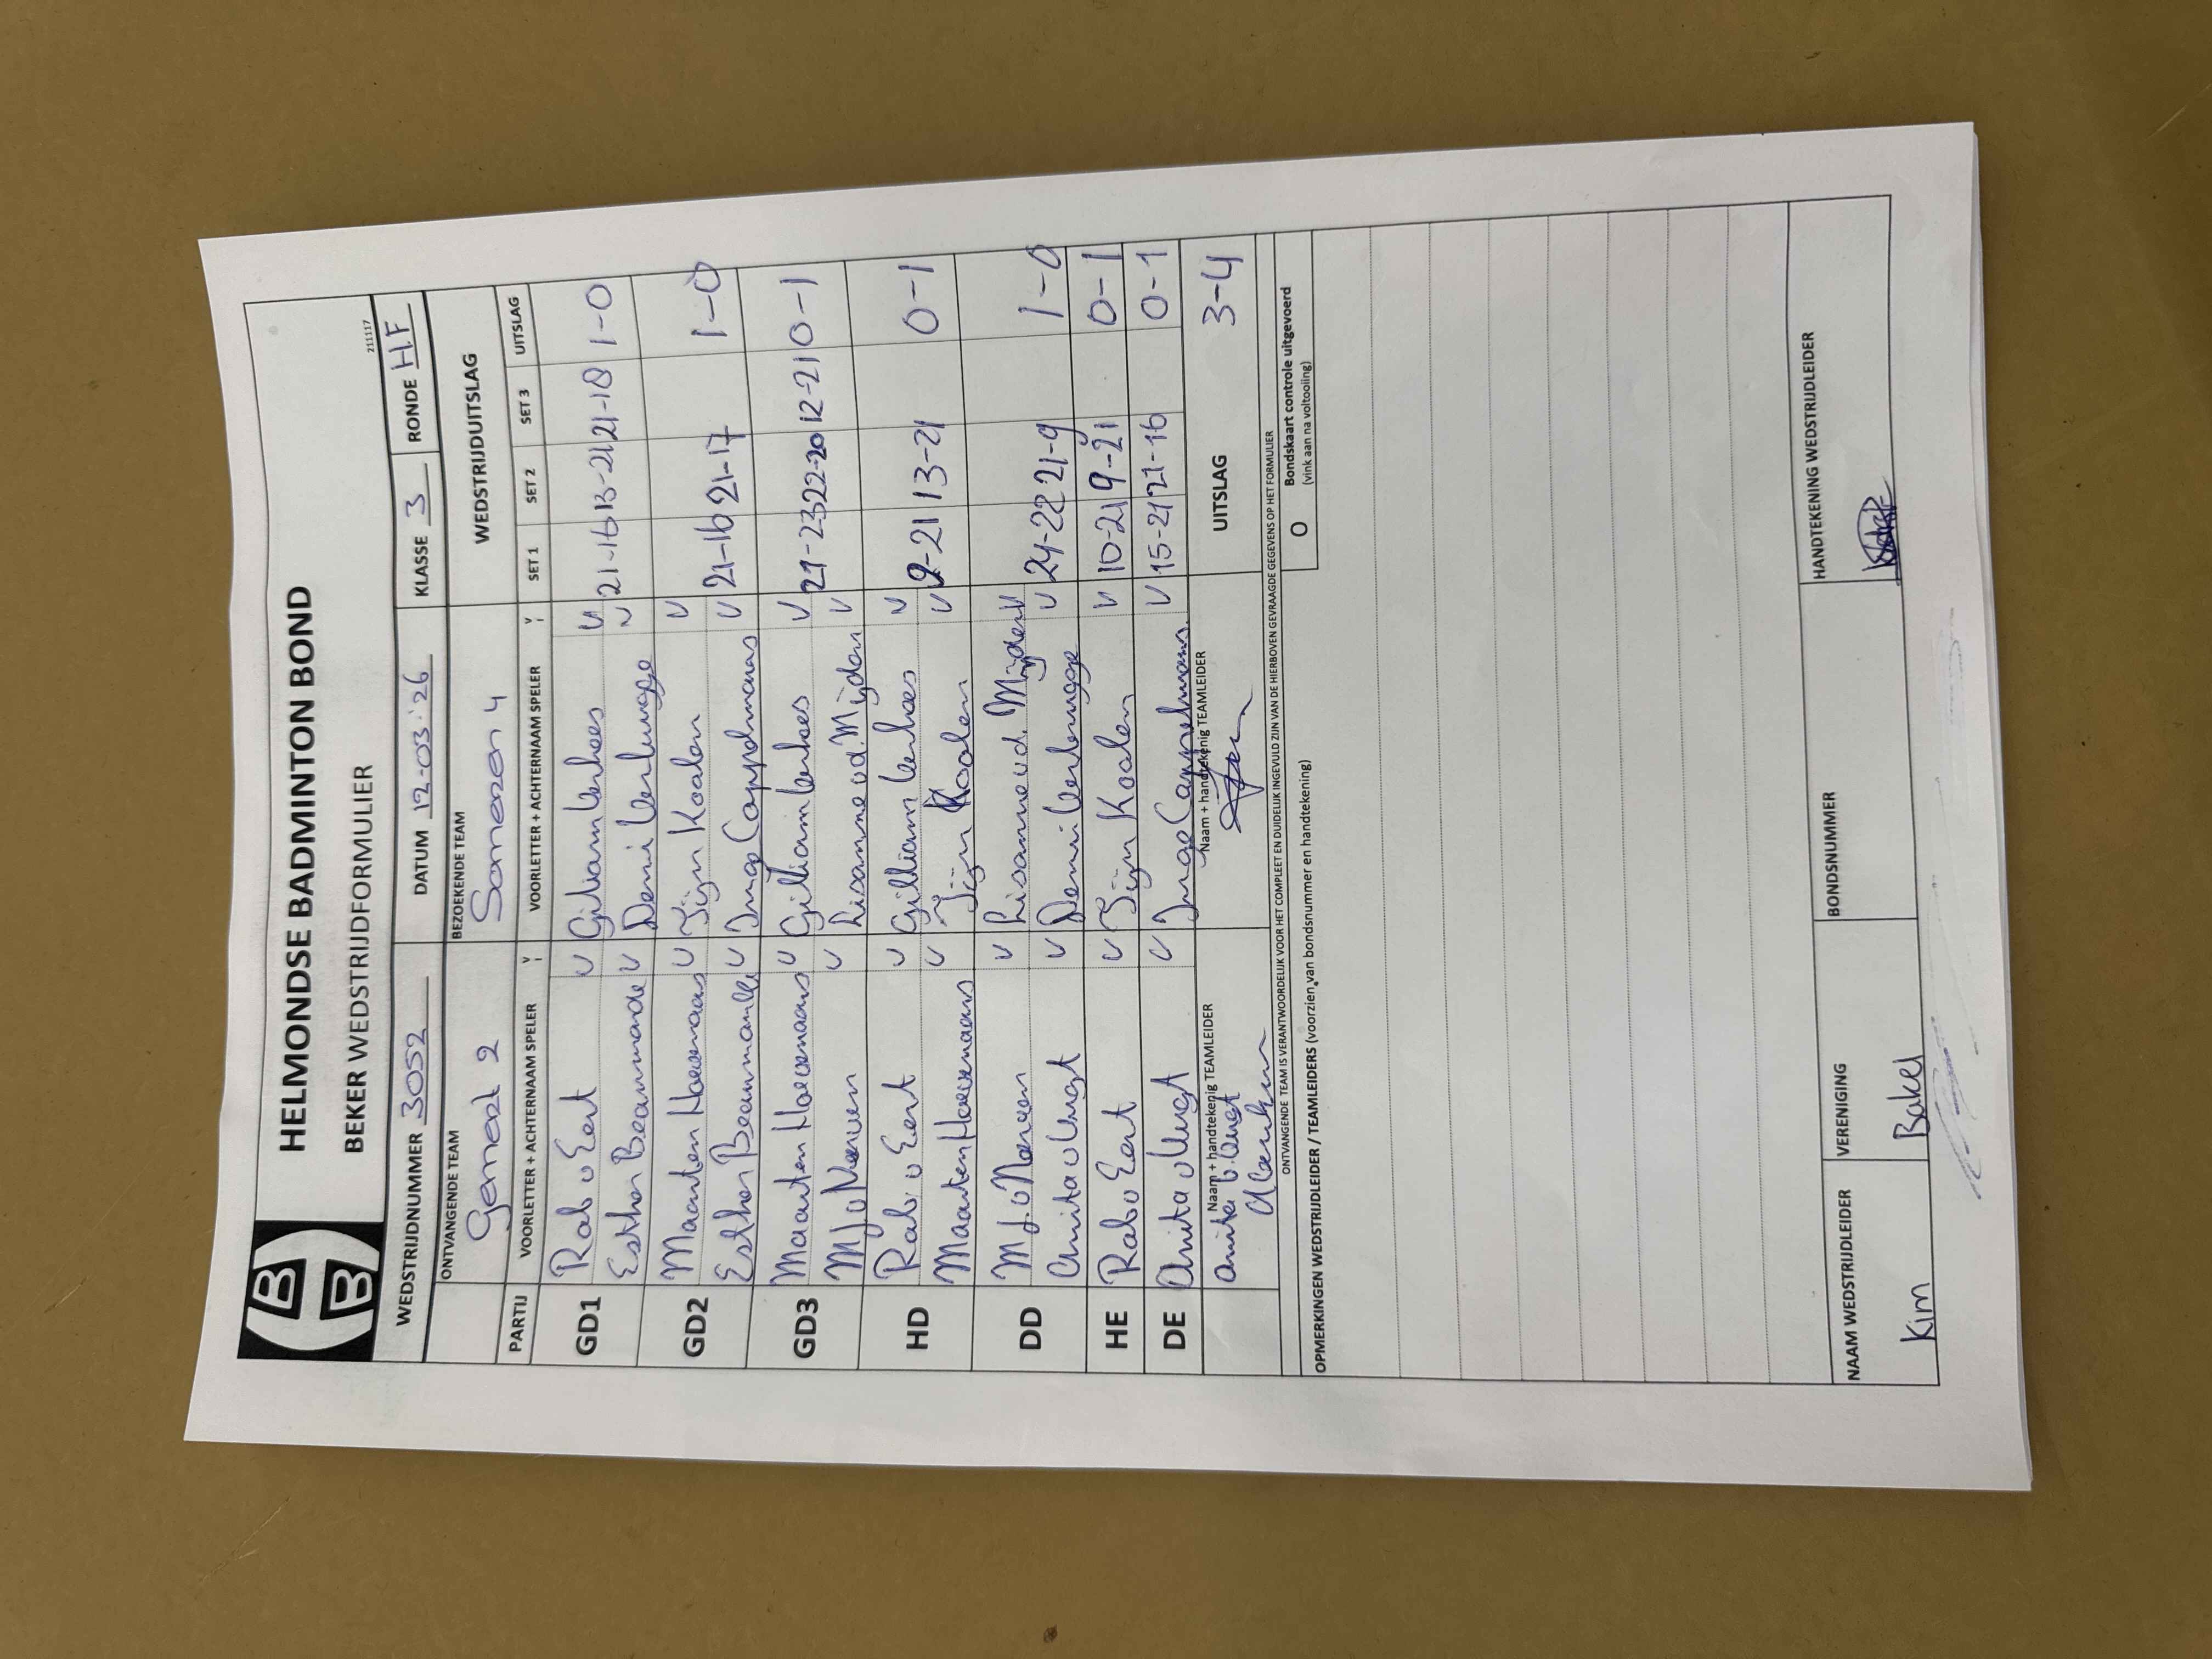 HELMONDSE BADMINTON BOND
BEKER WEDSTRIJDFORMULIER
21117
WEDSTRIJDNUMMER 3052 DATUM 12-03-'26 KLASSE 3 RONDE H.F
ONTVANGENDE TEAM BEZOEKENDE TEAM WEDSTRIJDUITSLAG
Gemert 2 Someren 4
PARTIJ VOORLETTER + ACHTERNAAM SPELER VOORLETTER + ACHTERNAAM SPELER SET 1 SET 2 SET 3 UITSLAG
GD1 Rob v Eert V Gilian Verhees V 21-16 13-21 21-18 1-0
Esther V Demi Verbrugge V
GD2 Maarten V Tijn Koolen V 21-16 21-17 1-0
Esther V Inge Cappelmans V
GD3 Maarten V Gillian Verhees V 21-23 22-20 12-21 0-1
MJ v V Lisanne v.d. Mijden V
HD Rob v Eert V Gillian Verhees V 9-21 13-21 0-1
Maarten V Tijn Koolen V
DD MJ v V Lisanne v.d. Mijden V 24-22 21-9 1-0
Anita v Vugt V Demi Verbrugge V
HE Rob v Eert V Tijn Koolen V 10-21 9-21 0-1
DE Anita v Vugt V Inge Cappelmans V 15-21 21-16 0-1
Naam + handtekenig TEAMLEIDER Naam + handtekenig TEAMLEIDER UITSLAG 3-4
Anita v. Vugt
ONTVANGENDE TEAM IS VERANTWOORDELIJK VOOR HET COMPLEET EN DUIDELIJK INGEVULD ZIJN VAN DE HIERBOVEN GEVRAAGDE GEGEVENS OP HET FORMULIER
OPMERKINGEN WEDSTRIJDLEIDER / TEAMLEIDERS (voorzien van bondsnummer en handtekening)
O Bondskaart controle uitgevoerd
(vink aan na voltooiing)
NAAM WEDSTRIJDLEIDER VERENIGING BONDSNUMMER HANDTEKENING WEDSTRIJDLEIDER
Kim Bakel